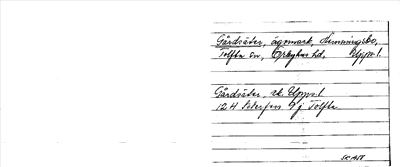 Gårdsäter, ägomark, Hemmingsbo,
Tolfta sn, Örbyhus hd, Upps. l.
Gårdsäter, st. Upps. l.
124 Seterfors Tolfta